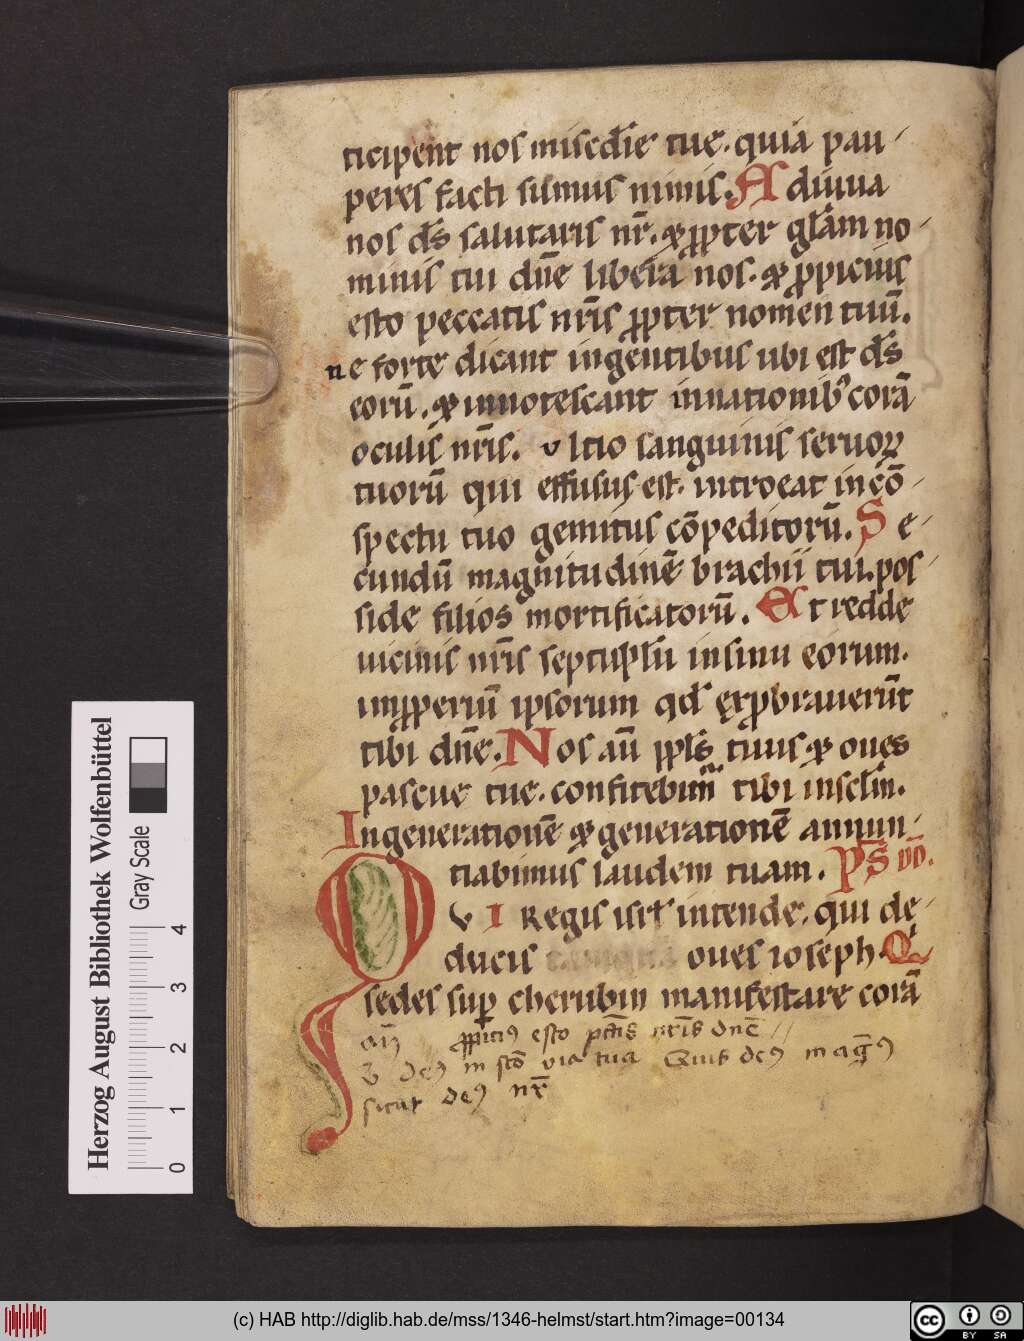 ticipent nos misedĩe tue. quia pau-
peres facti sumus nimis. Adiuua
nos dš salutaris nr̃. & ꝓpter glãm no-
minis tui dñe libera nos. & ꝓpicius
esto peccatis nr̃is ꝓpter nomen tuũ.
ne forte dicant ingentibus ubi est dš
eorũ. & innotescant innationibꝰ corã
oculis nr̃is. vltio sanguinis seruoꝝ
tuorũ qui effusus est. introeat incõ-
spectu tuo gemitus cõpeditorũ. Se-
cundũ magnitudinẽ brachii tui. pos-
side filios mortificatorũ. Et redde
uicinis nr̃is septuplũ insinu eorum.
imꝓperiũ ipsorum qd̃ exꝓbrauerũt
tibi dñe. Nos aũ ppłs tuus & oues
pascue tue. confitebim̃ tibi insclm̃.
Ingenerationẽ & generationẽ annun-
tiabimus laudem tuam. Pš̃ Dõ.
QVI Regis isrł intende. qui de-
ducis oues ioseph. Q
sedes suꝑ cherubin manifestare corã
añ ꝓpitiꝰ esto pctĩs nr̃is dnẽ
deꝰ in scõ via tua Quis deꝰ magꝰ
sicut deꝰ nr̃
Herzog August Bibliothek Wolfenbüttel
Gray Scale
0 1 2 3 4
(c) HAB http://diglib.hab.de/mss/1346-helmst/start.htm?image=00134
cc BY SA